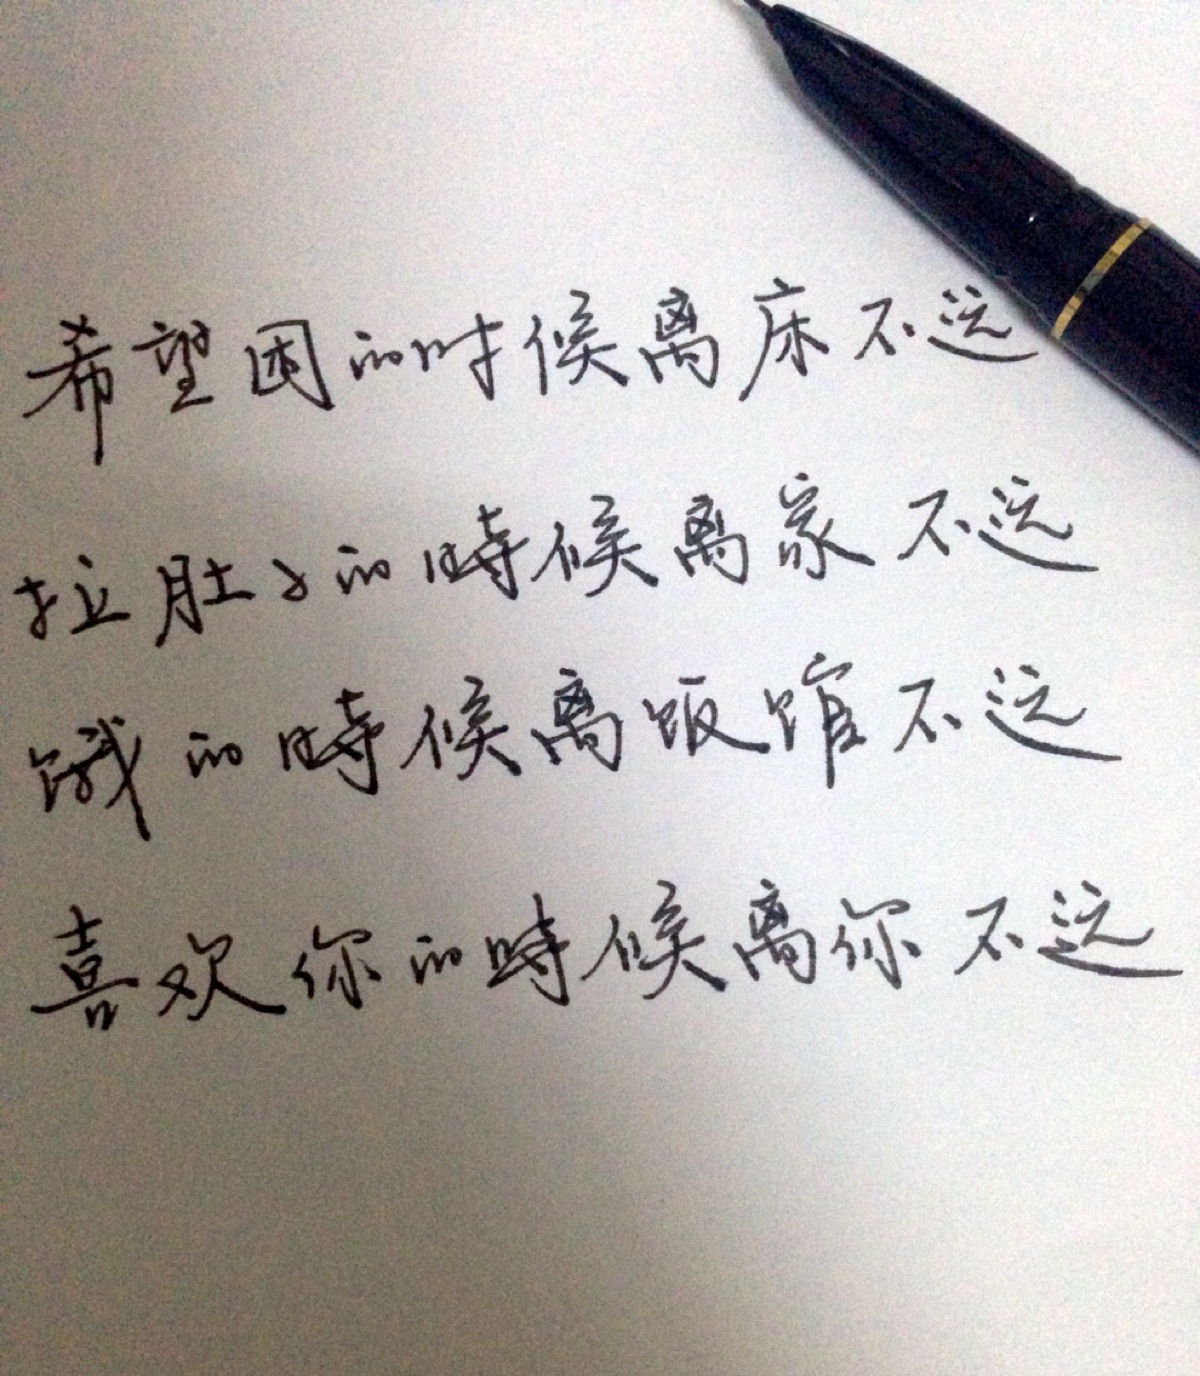 希望困的时候离床不远
拉肚子的時候离家不远
饿的時候离饭馆不远
喜欢你的時候离你不远